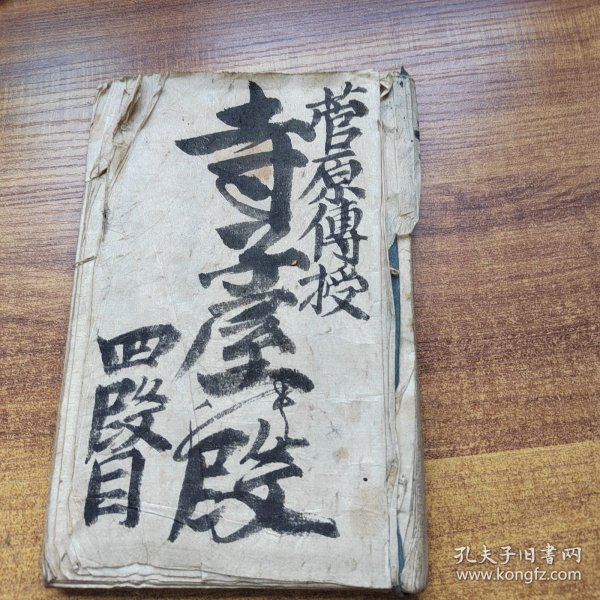 菅原傳授
寺子屋の段
四段目
孔夫子旧書网
www.kongfz.com